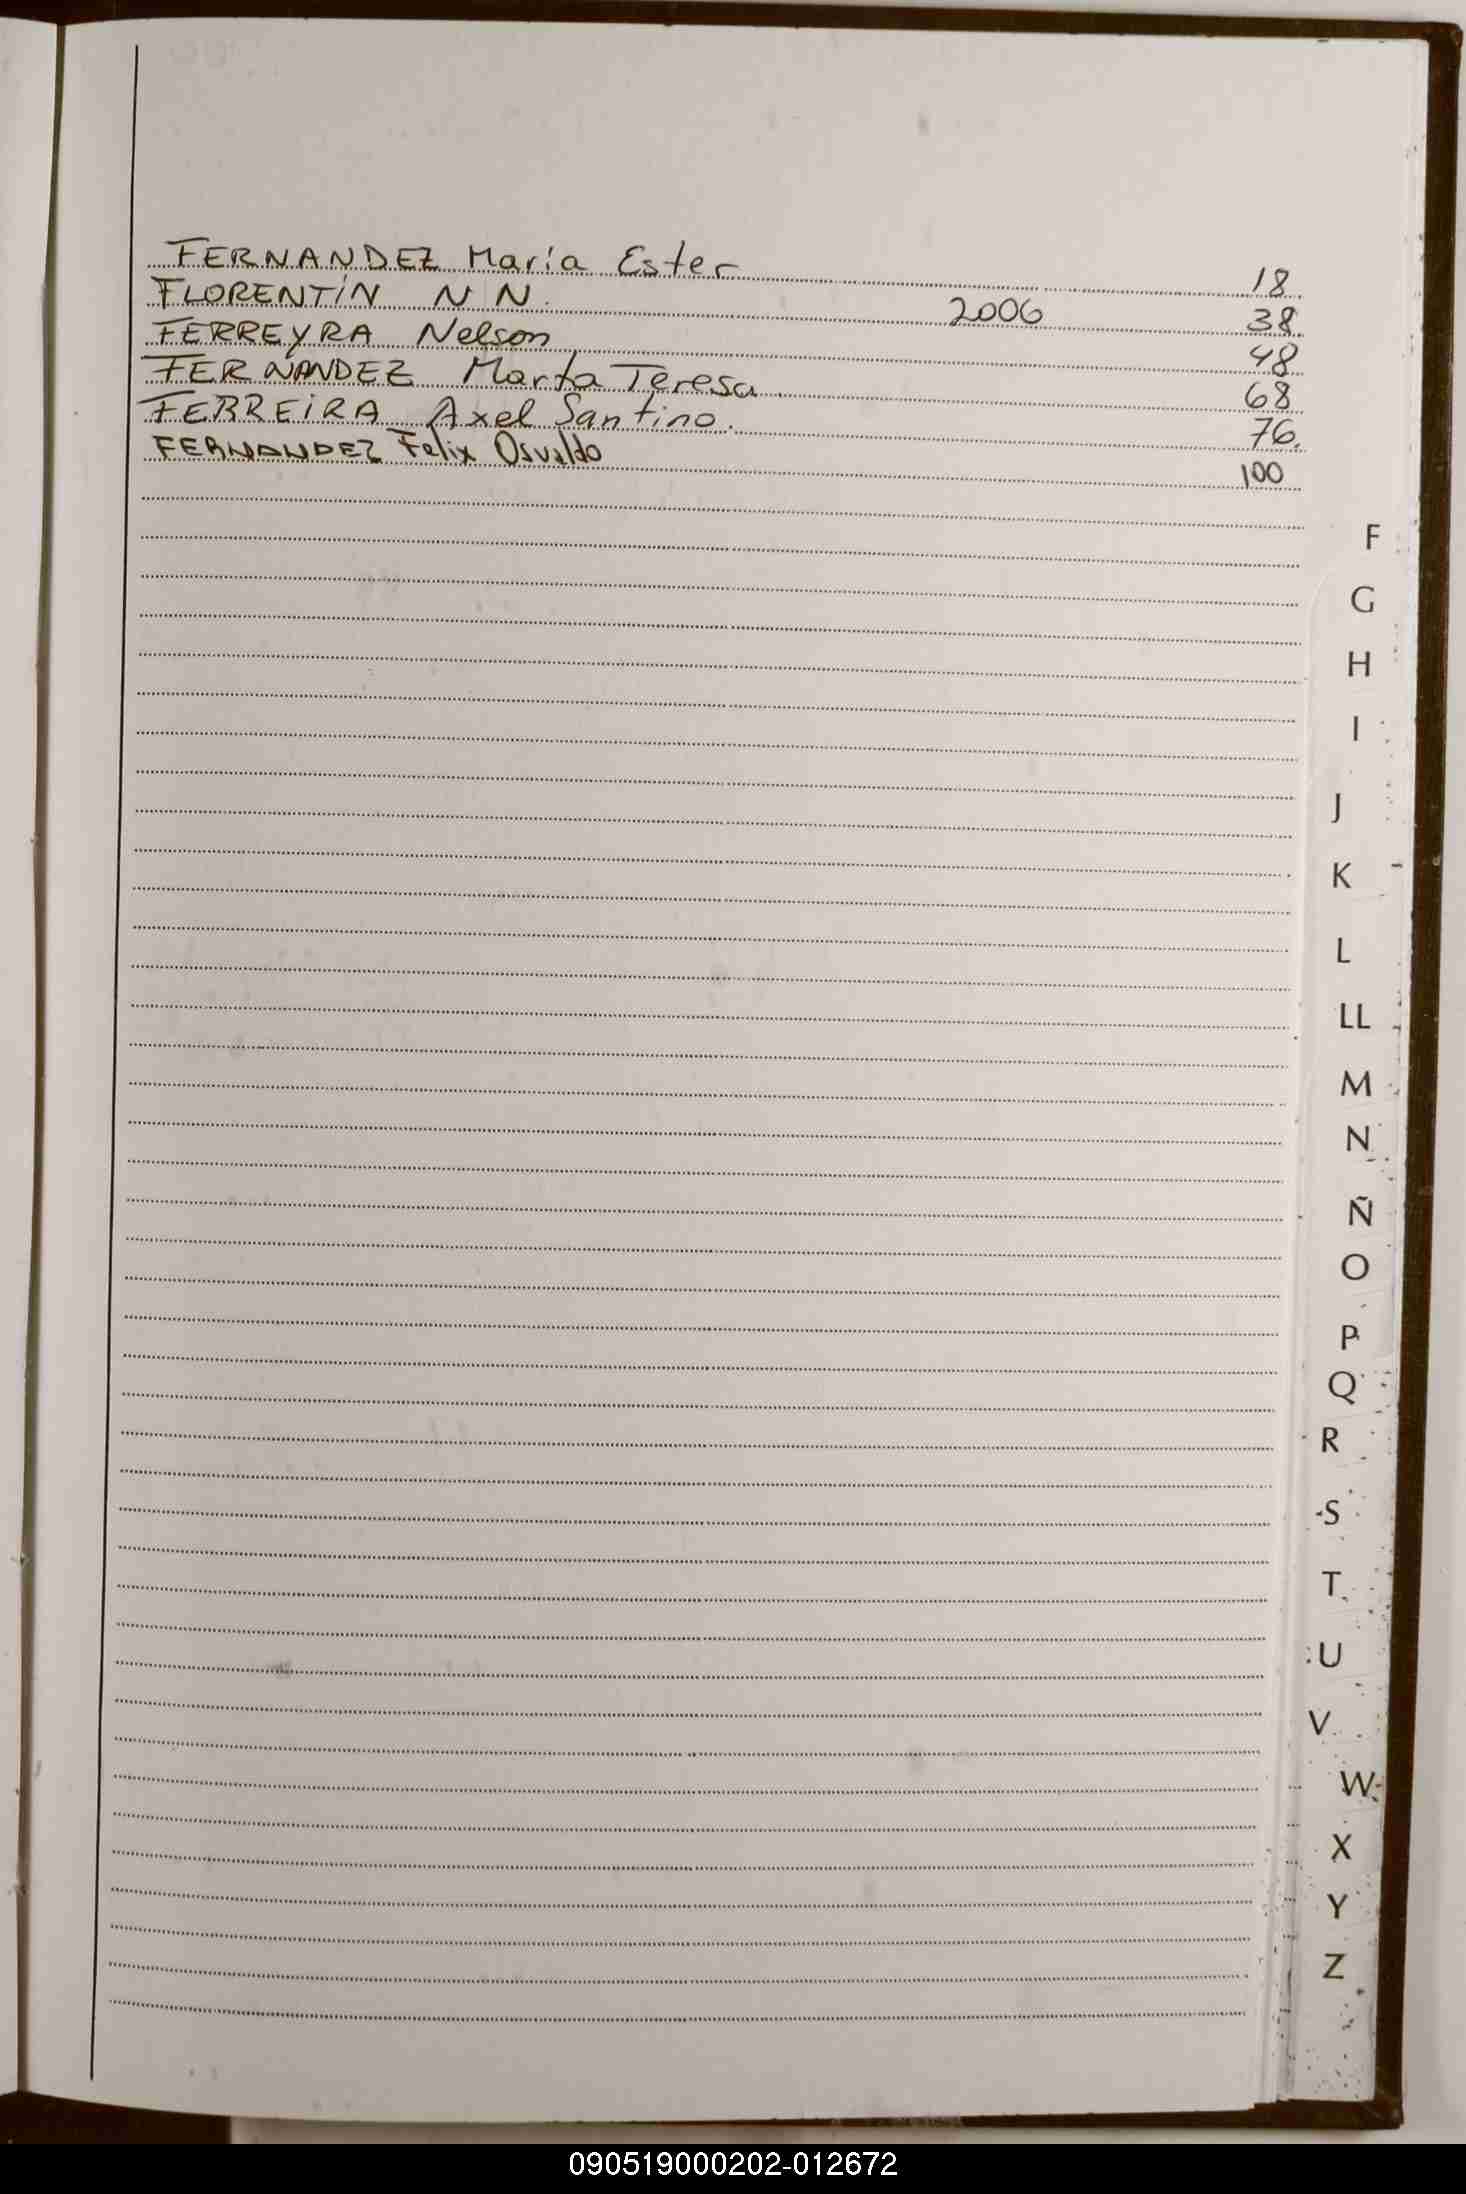 FERNANDEZ María Ester 18
FLORENTÍN N N. 2006 38
FERREYRA Nelson 48
FERNANDEZ Marta Teresa 68
FERREIRA Axel Santino. 76
FERNANDEZ Felix Osvaldo 100
F
G
H
I
J
K
L
LL
M
N
Ñ
O
P
Q
R
S
T
U
V
W
X
Y
Z
090519000202-012672